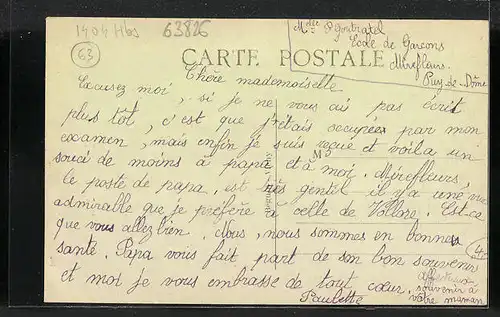 1404 Hbs 63826
63
Mdee P. Gontratel
Ecole de Garçons
Mirefleurs.
Puy-de-Dôme
CARTE POSTALE
Chère mademoiselle
Excusez moi, si je ne vous ai pas écrit
plus tôt, c'est que j'étais occupée par mon
examen, mais enfin je suis reçue et voila un
souci de moins à papa et à moi. Mirefleurs,
le poste de papa, est très gentil il y a une vue
admirable que je préfère à celle de Vollore. Est-ce
que vous allez bien. Nous, nous sommes en bonnes
santé. Papa vous fait part de son bon souvenir
et moi je vous embrasse de tout cœur.
Paulette
souvenir à
votre maman